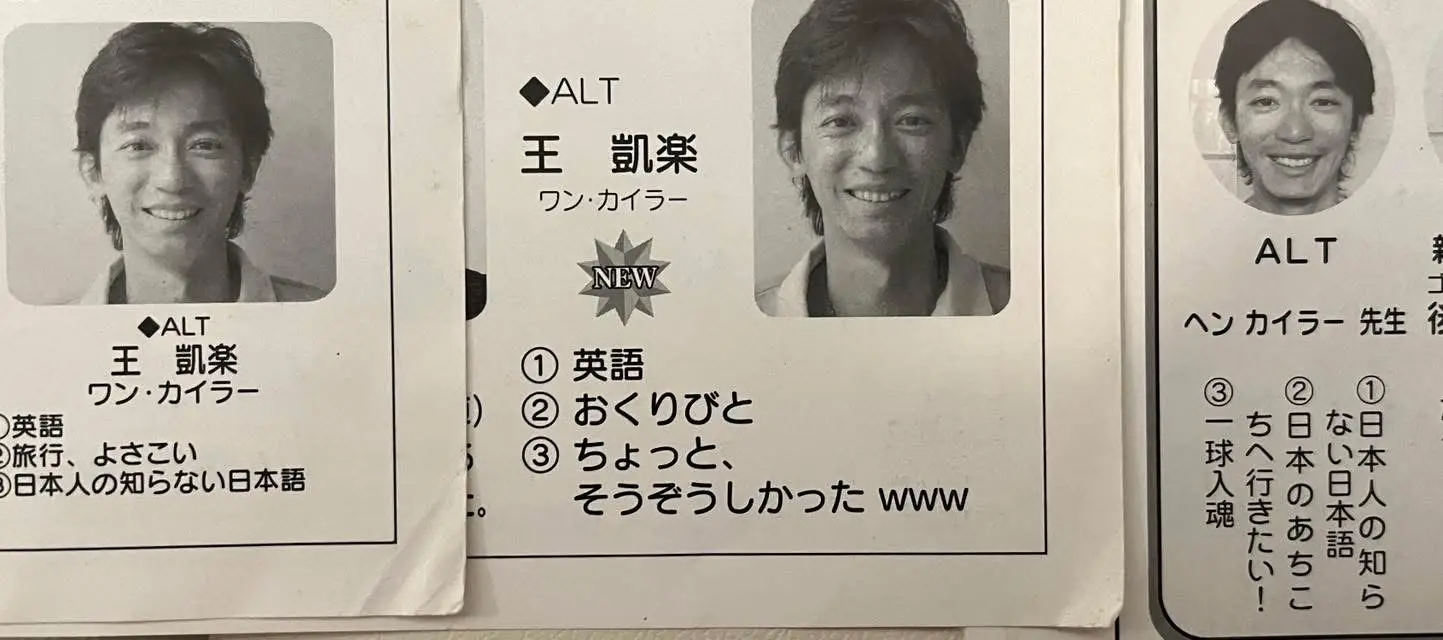 ◆ALT
王 凱楽
ワン・カイラー
①英語
②旅行、よさこい
③日本人の知らない日本語
◆ALT
王 凱楽
ワン・カイラー
NEW
① 英語
② おくりびと
③ ちょっと、
そうぞうしかった www
ALT
ヘン カイラー 先生
①日本人の知ら
ない日本語
②日本のあちこ
ちへ行きたい！
③一球入魂